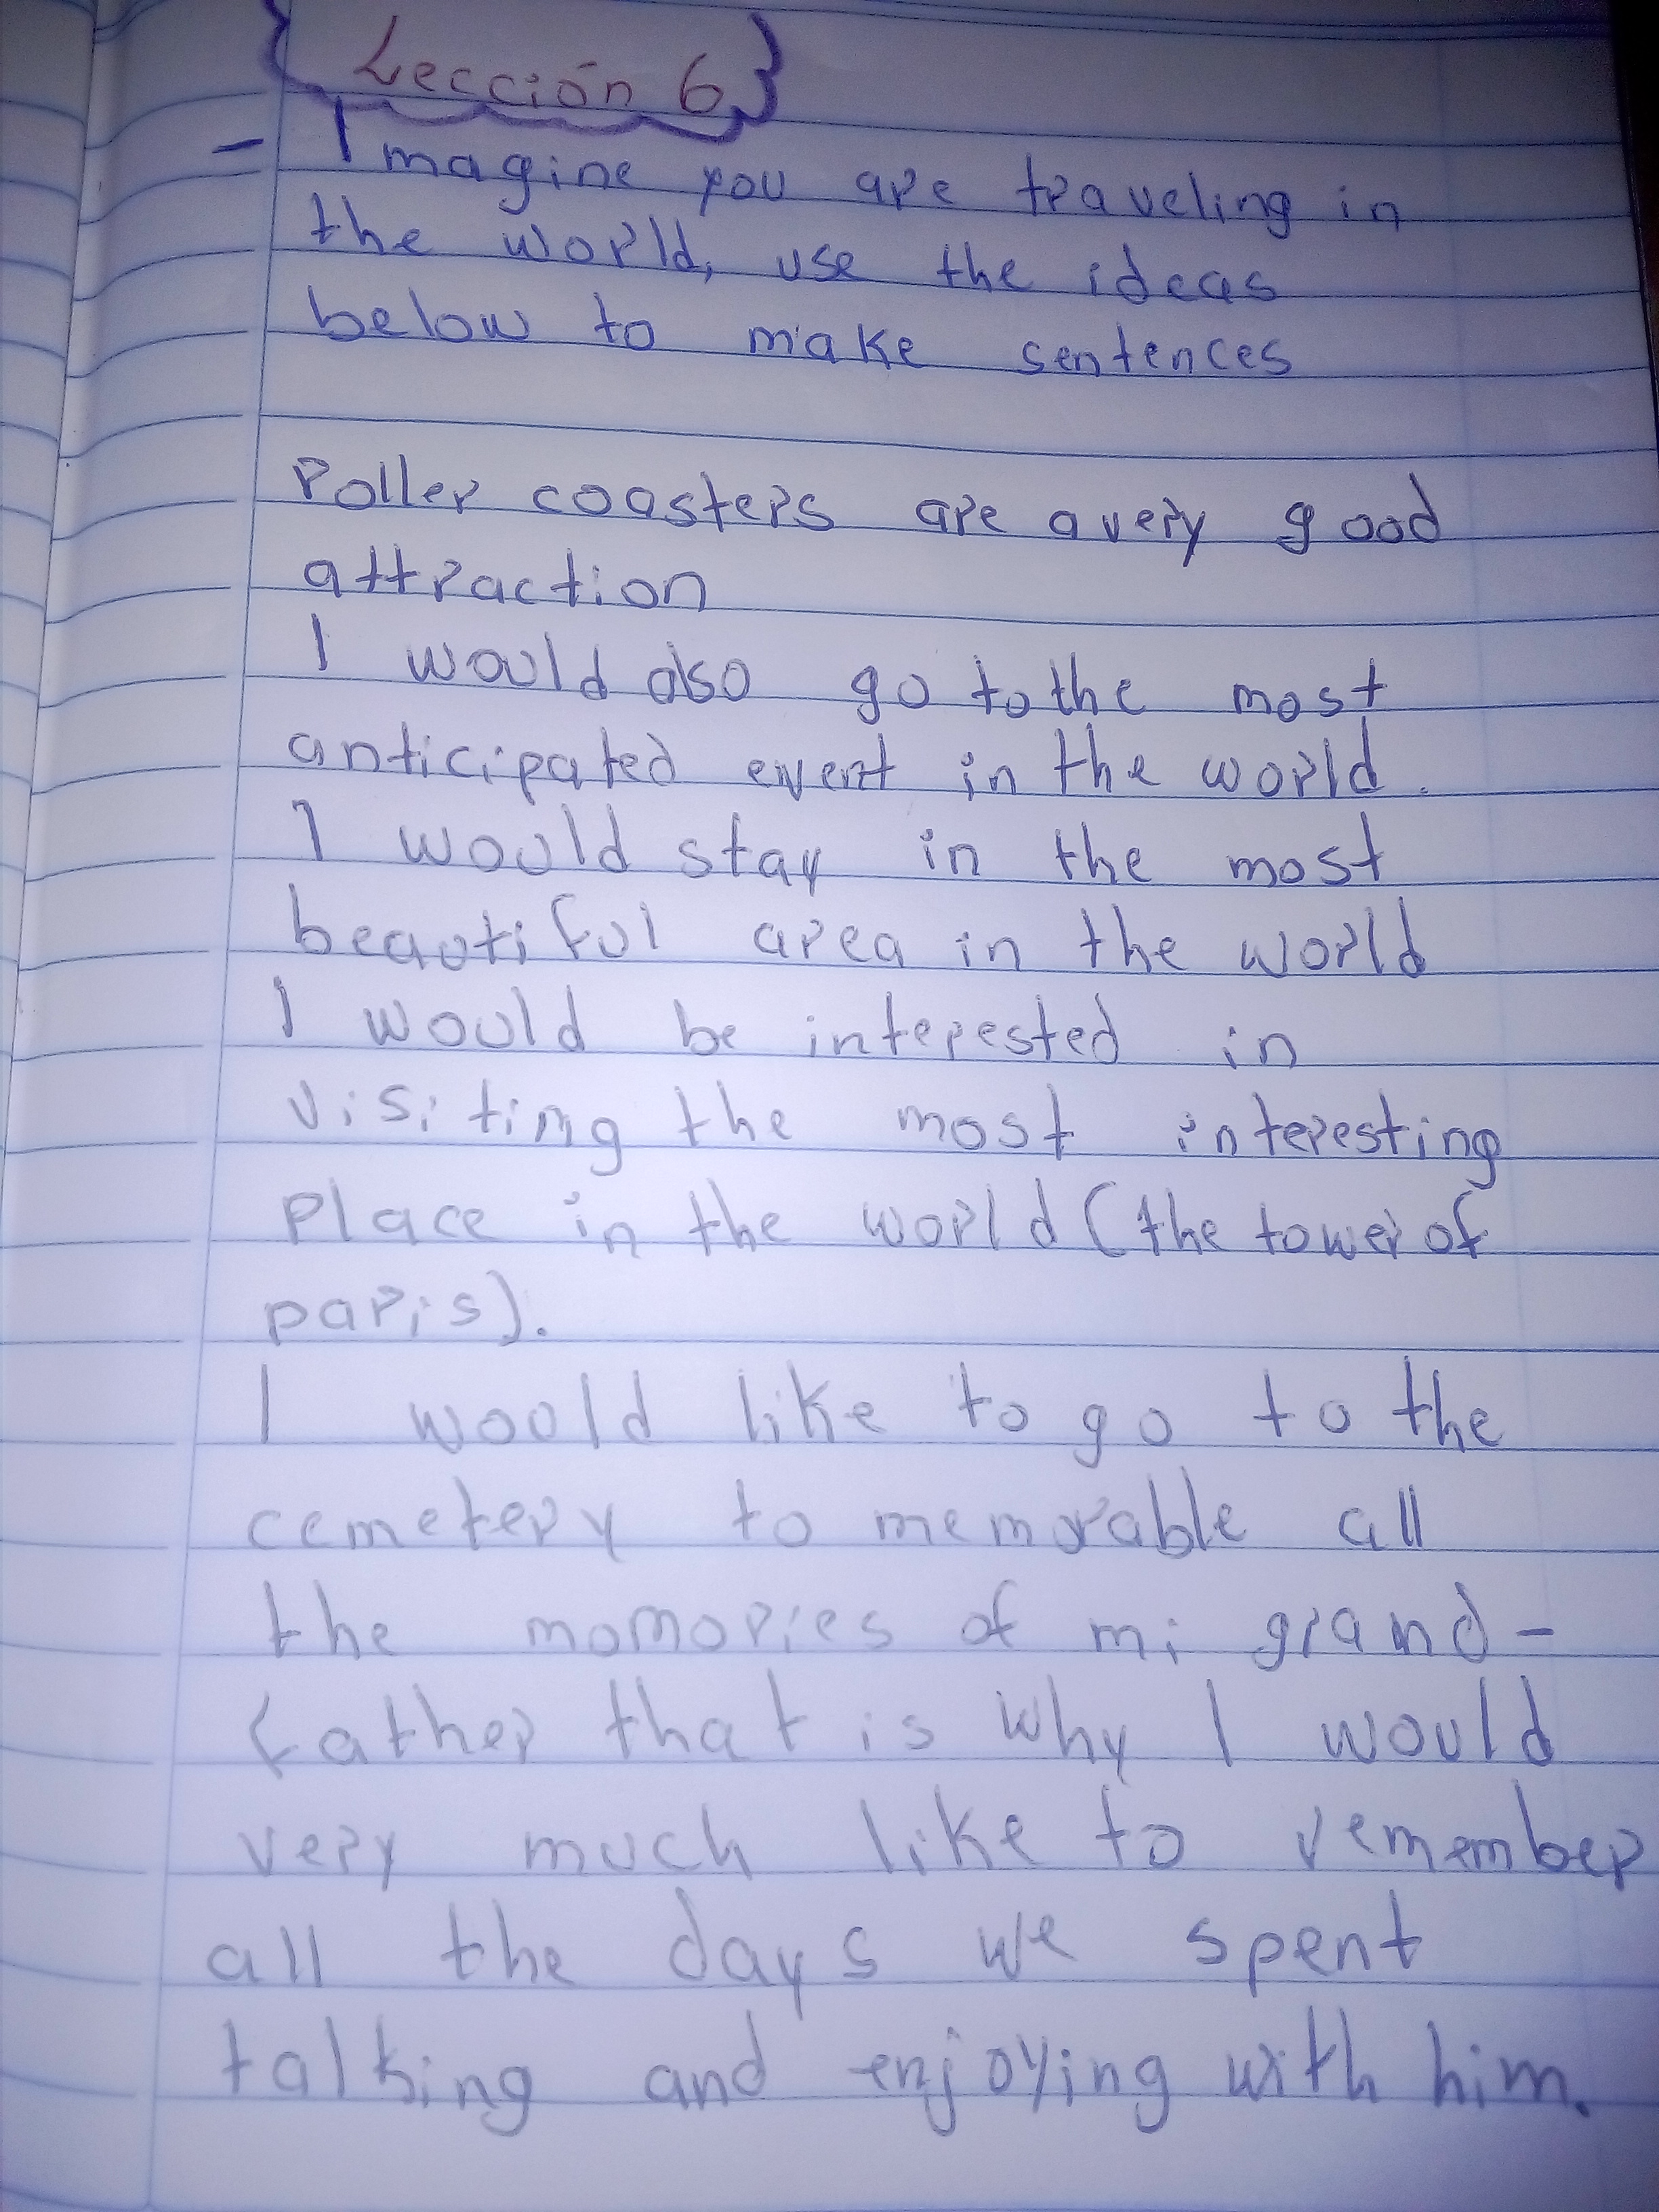 Lección 6
- Imagine you are traveling in
the world, use the ideas
below to make sentences
Roller coasters are a very good
attraction
I would also go to the most
anticipated event in the world.
I would stay in the most
beautiful area in the world
I would be interested in
visiting the most interesting
place in the world (the tower of
paris).
I would like to go to the
cemetery to memorable all
the momories of mi grand-
father that is why I would
very much like to remember
all the days we spent
talking and enjoying with him.